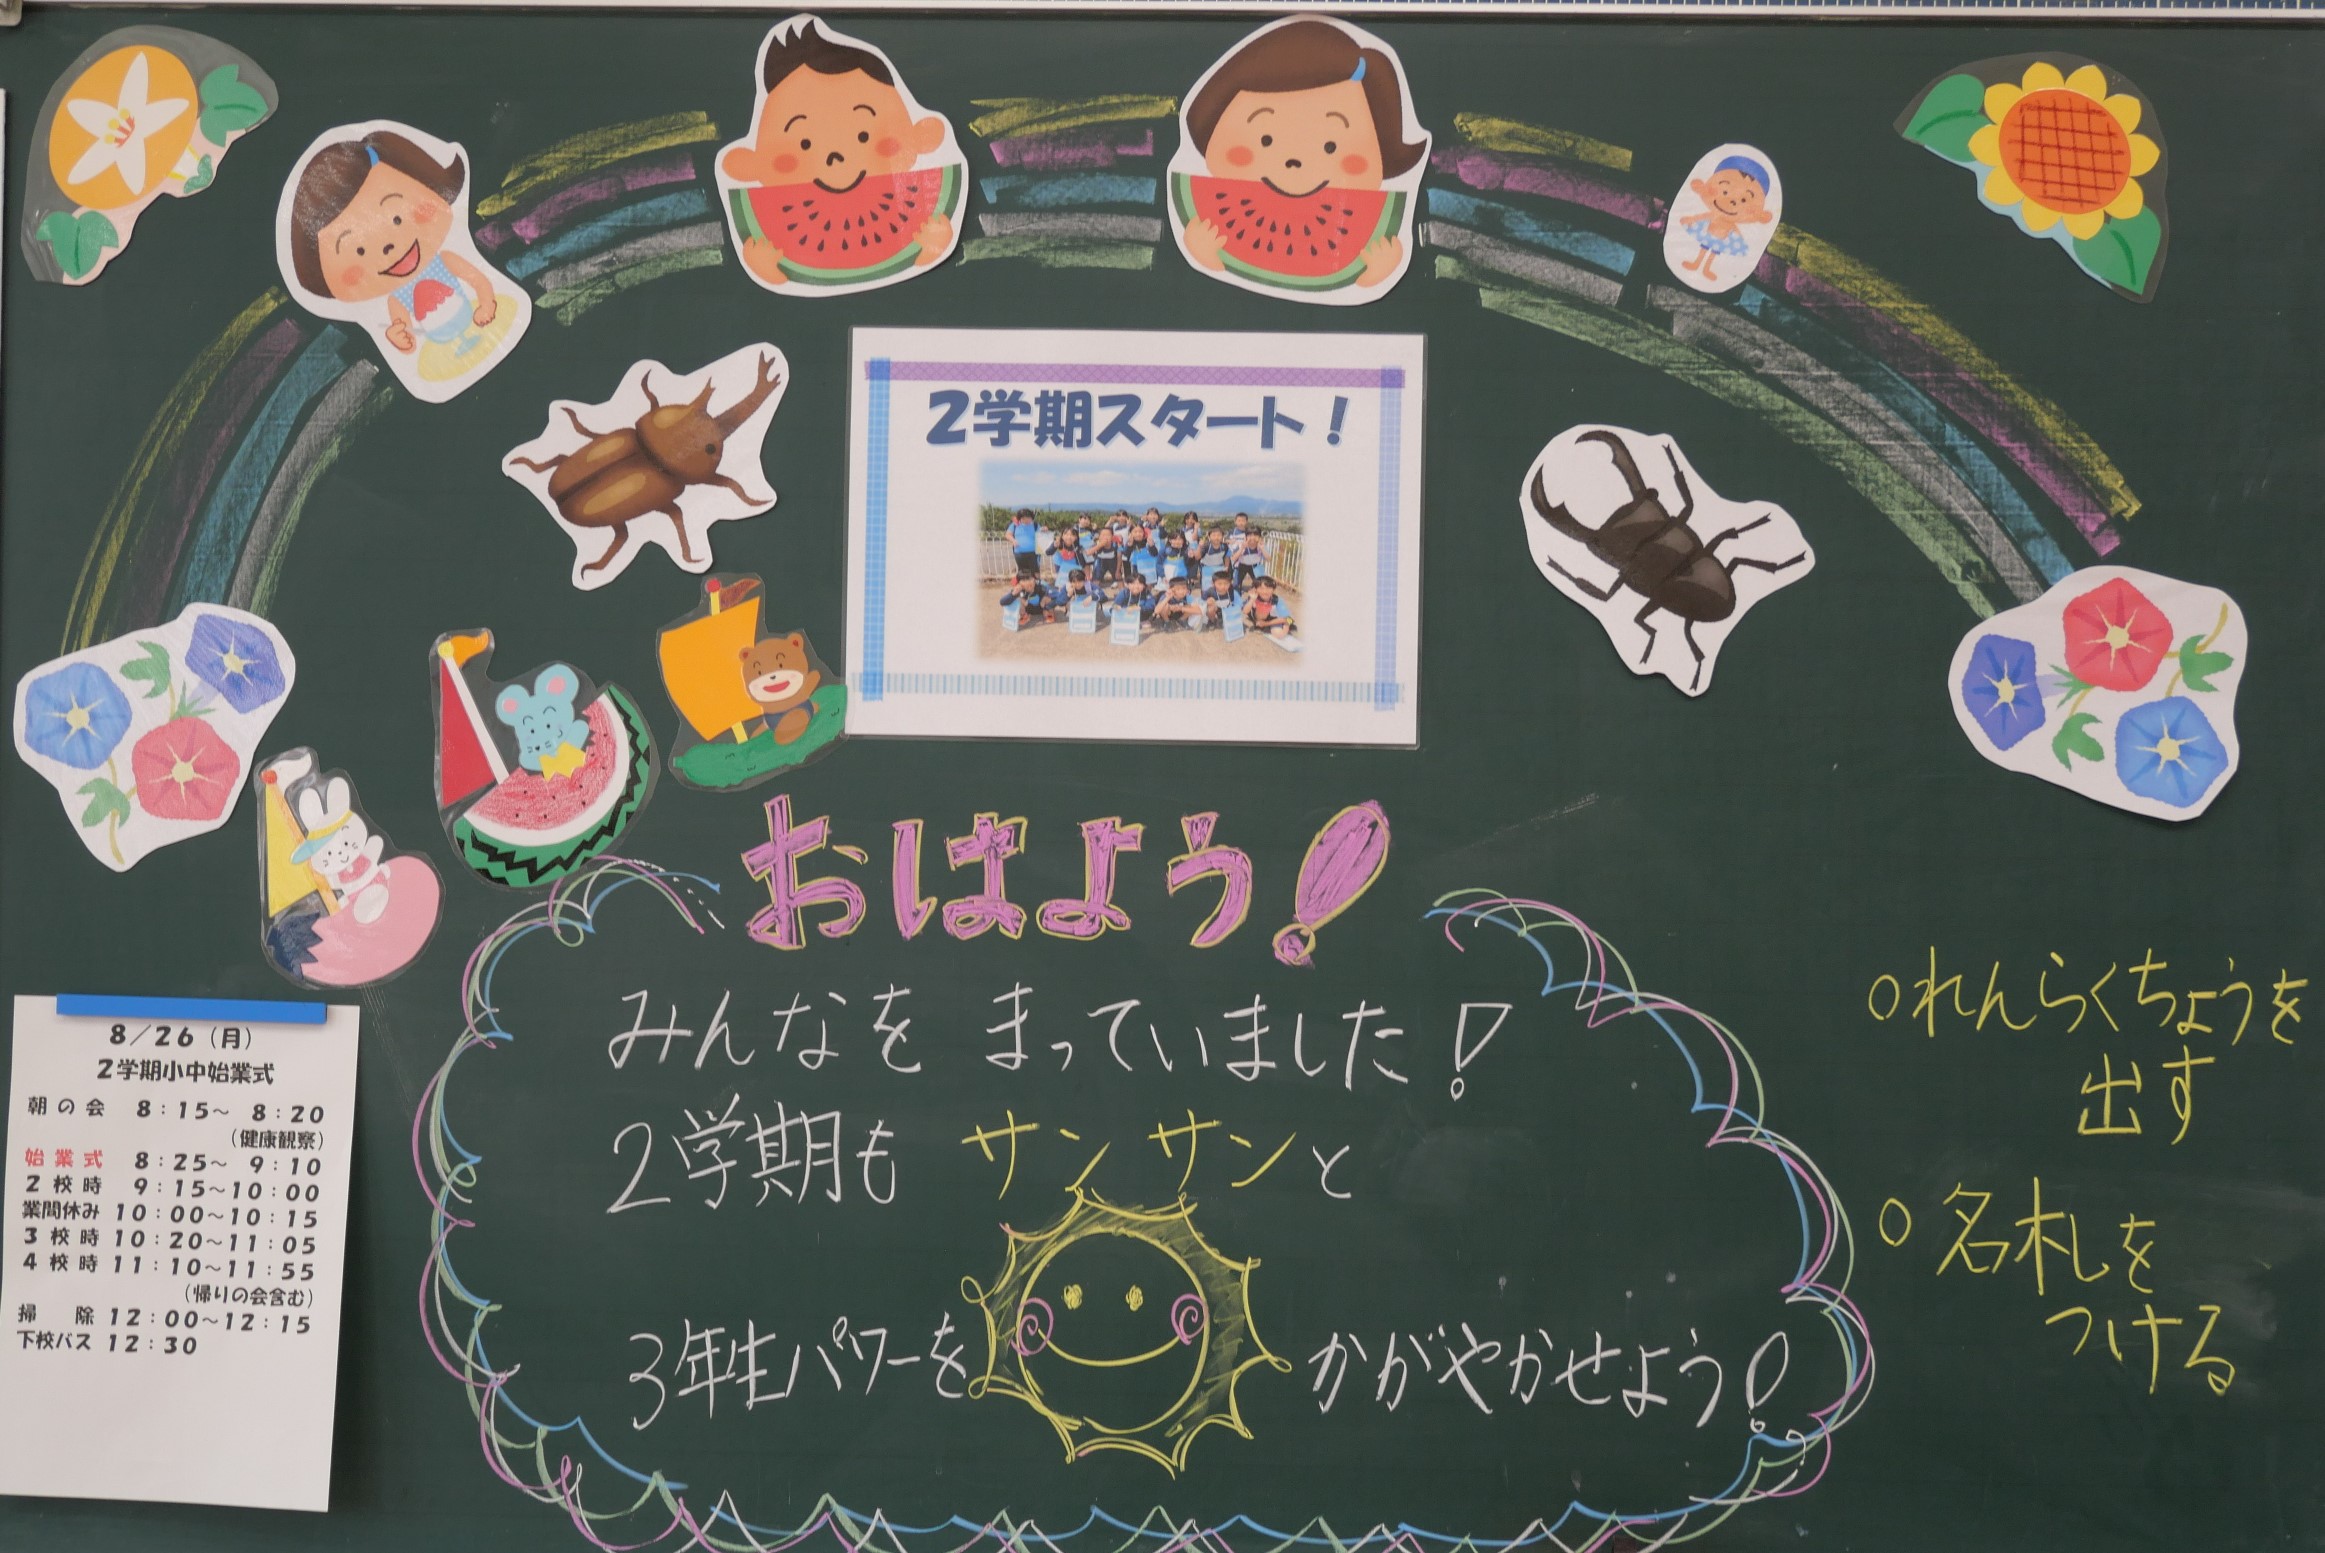 2学期スタート!
おはよう!
みんなを まっていました!
2学期も サンサンと
3年生パワーを かがやかせよう!
○れんらくちょうを
出す
○名札を
つける
8/26(月)
2学期小中始業式
朝の会 8:15~ 8:20
(健康観察)
始業式 8:25~ 9:10
2校時 9:15~10:00
業間休み 10:00~10:15
3校時 10:20~11:05
4校時 11:10~11:55
(帰りの会含む)
掃 除 12:00~12:15
下校バス 12:30